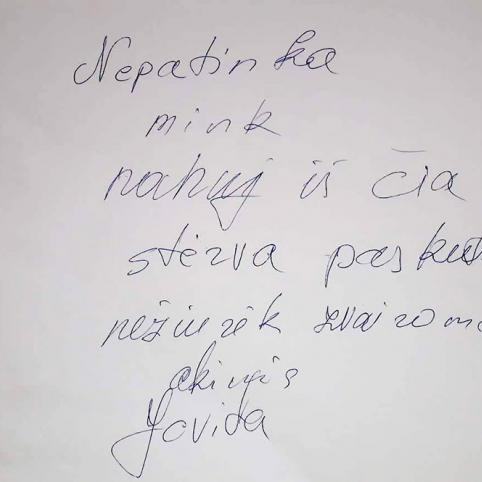 Nepatinka
mink
nahuj iš čia
stėrva paskut
nežiurėk žvairom
akimis
Jovita